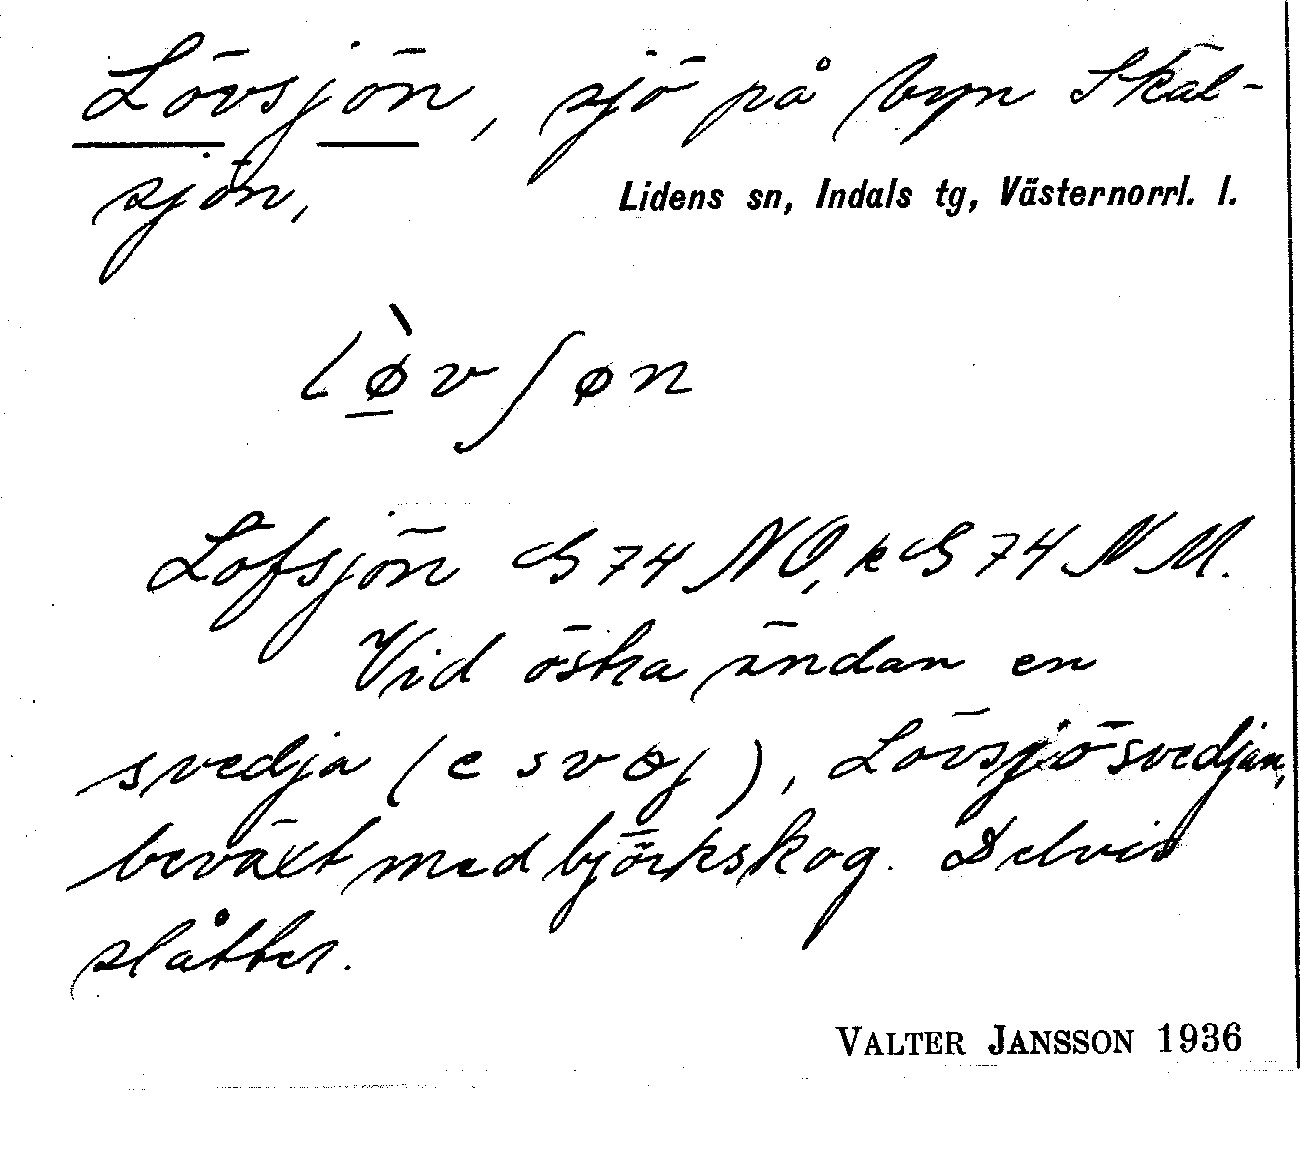 Lövsjön, sjö på byn Skäl-
sjön,
Lidens sn, Indals tg, Västernorrl. l.
lø̀vʃøn
Löfsjön GS 74 NO, k GS 74 NM.
Vid östra ändan en
svedja (e svøj), Lövsjösvedjan,
beväxt med björkskog. Delvis
slåtter.
VALTER JANSSON 1936